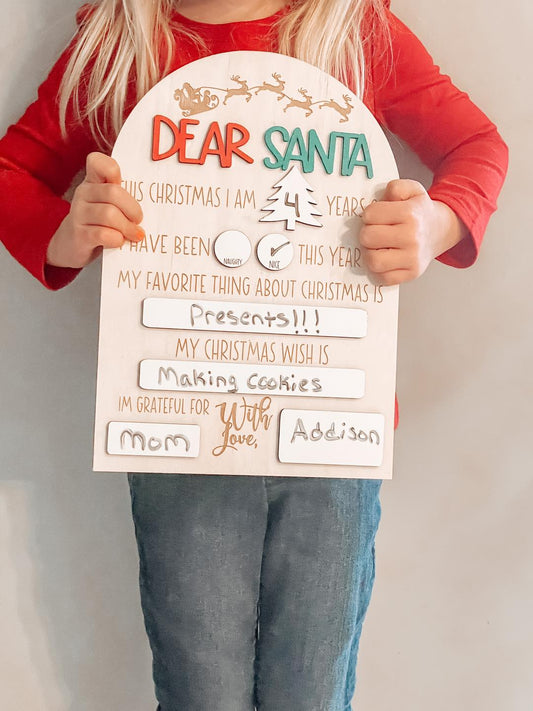 DEAR SANTA
THIS CHRISTMAS I AM 4 YEARS
I HAVE BEEN NAUGHTY ✓ NICE THIS YEAR
MY FAVORITE THING ABOUT CHRISTMAS IS
Presents!!!
MY CHRISTMAS WISH IS
Making Cookies
IM GRATEFUL FOR
Mom
With Love,
Addison